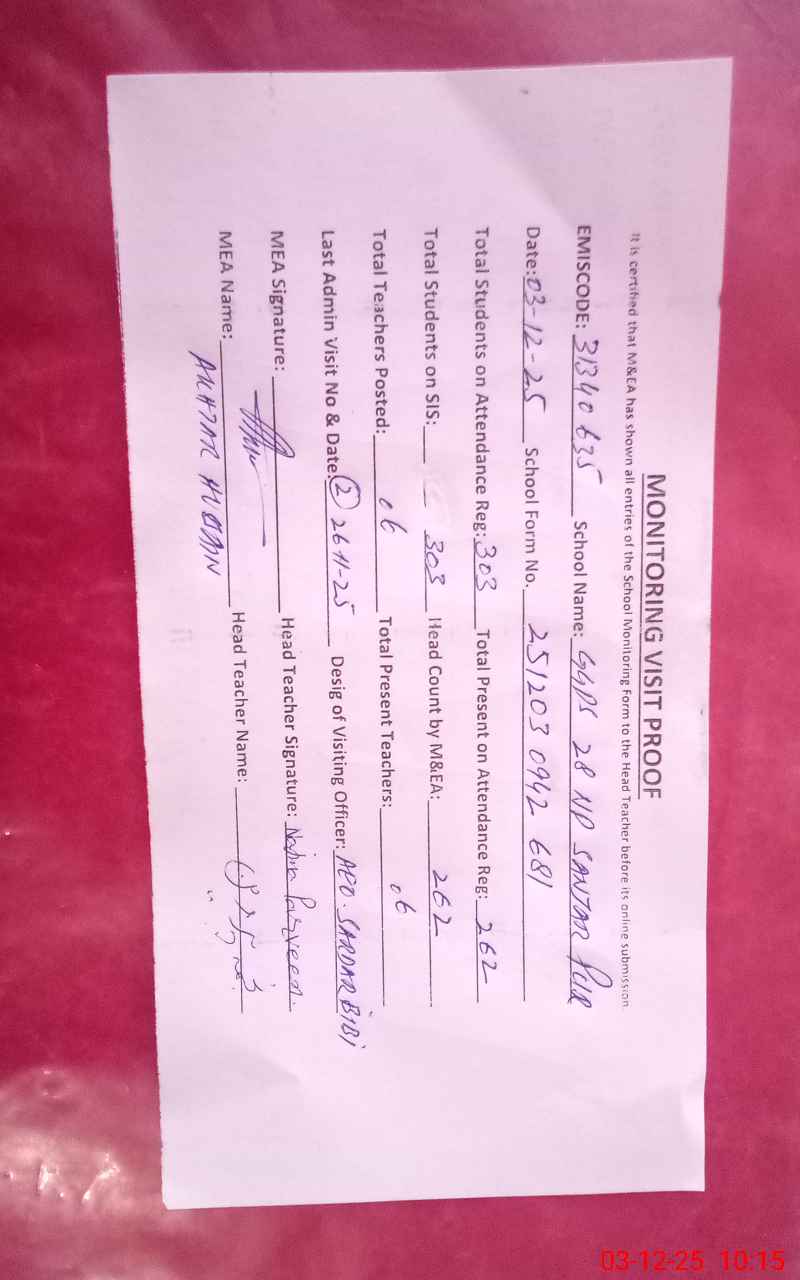 MONITORING VISIT PROOF
It is certified that M&EA has shown all entries of the School Monitoring Form to the Head Teacher before its online submission.
EMISCODE: 31340635 School Name: GGPS 28 NP SANJAR PUR
Date: 03-12-25 School Form No. 251203 0942 681
Total Students on Attendance Reg: 303 Total Present on Attendance Reg: 262
Total Students on SIS: 303 Head Count by M&EA: 262
Total Teachers Posted: 06 Total Present Teachers: 06
Last Admin Visit No & Date: (2) 26 11-25 Desig of Visiting Officer: AEO. SARDAR BiBi
MEA Signature: Head Teacher Signature: Najma Parveen.
MEA Name: Head Teacher Name:
03-12-25 10:15